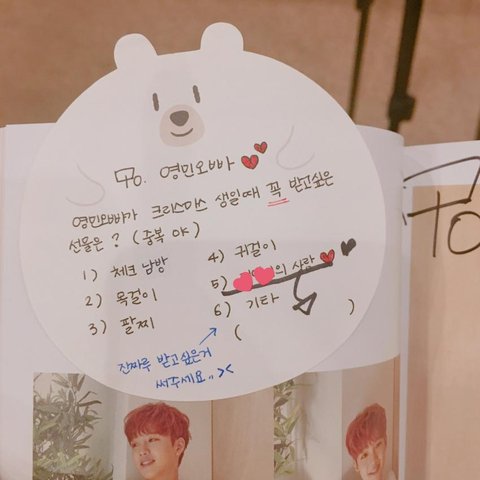 To. 영민오빠
영민오빠가 크리스마스 생일때 꼭 받고싶은
선물은? (중복 야)
1) 체크 남방
2) 목걸이
3) 팔찌
4) 귀걸이
5) 의 사랑
6) 기타
( )
진짜루 받고싶은거
써주세요.. ><
To